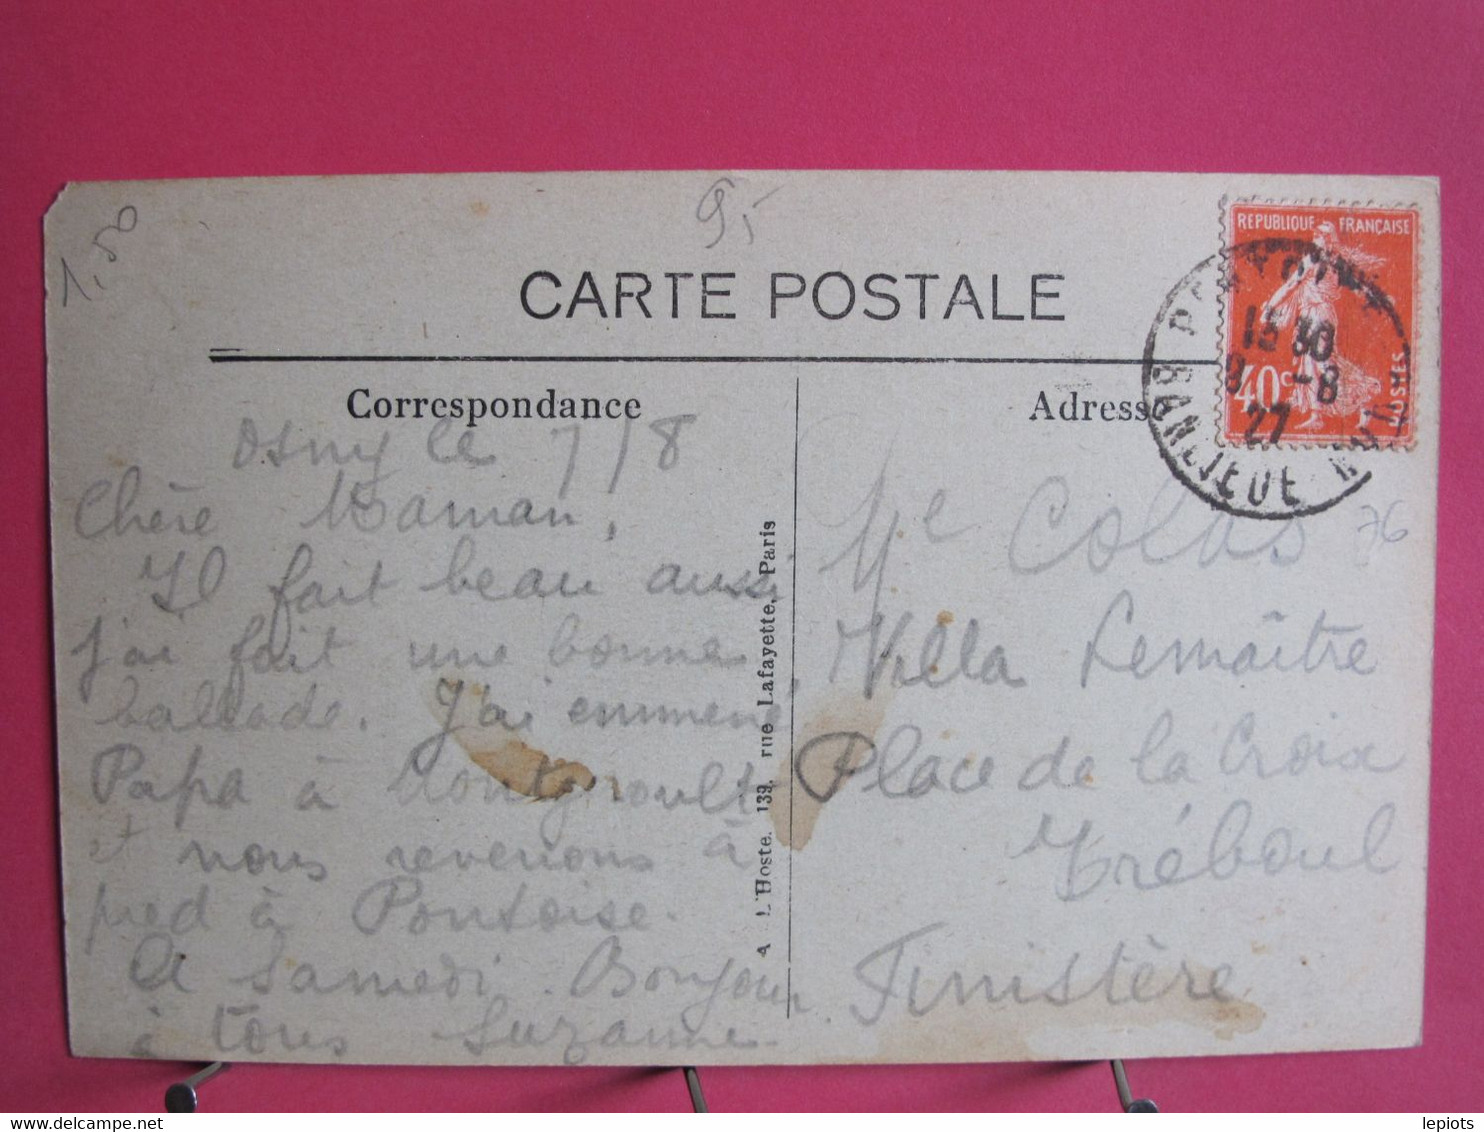 1,50
95
CARTE POSTALE
REPUBLIQUE FRANÇAISE
40c
POSTES
PONTOISE
BANLIEUE
15 30
8 -8
27
Correspondance
Adresse
Osny le 7/8
Chère Maman,
Il fait beau aussi
j'ai fait une bonne
ballade. J'ai emmené
Papa à Montgeroult
et nous revenons à
pied à Pontoise.
A Samedi. Bonjour
à tous Suzanne.
A L'Hoste, 139, rue Lafayette, Paris
Me Colas
76
Villa Lemaître
Place de la Croix
Tréboul
Finistère
lepiots
www.delcampe.net